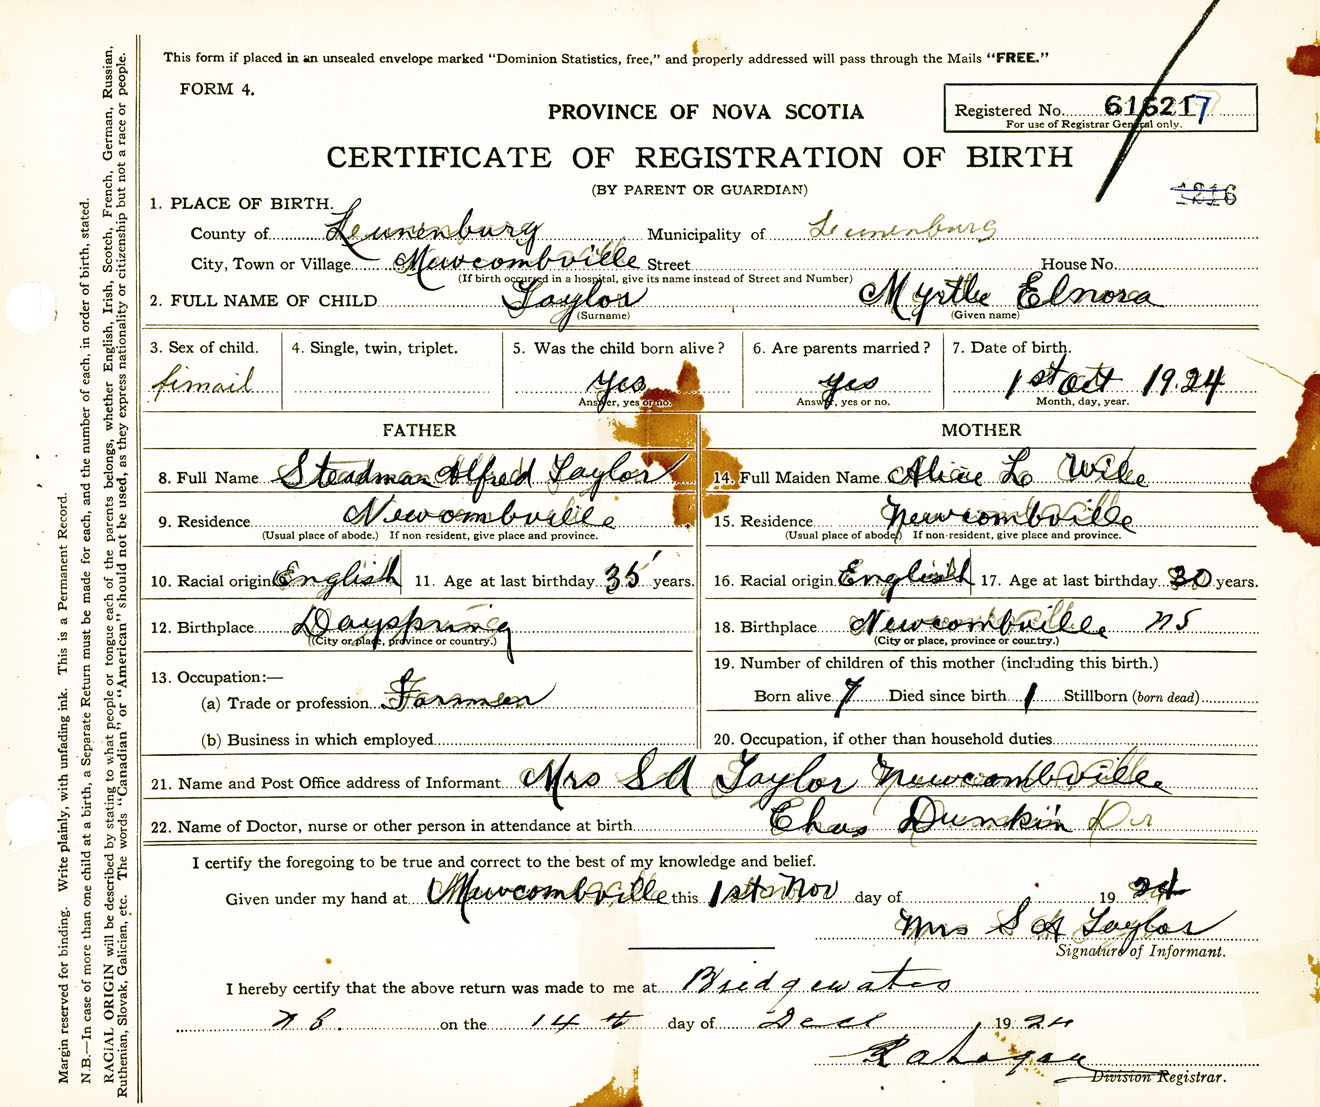 This form if placed in an unsealed envelope marked "Dominion Statistics, free," and properly addressed will pass through the Mails "FREE."
FORM 4.
PROVINCE OF NOVA SCOTIA
Registered No. 616217
For use of Registrar General only.
CERTIFICATE OF REGISTRATION OF BIRTH
(BY PARENT OR GUARDIAN)
1216
1. PLACE OF BIRTH.
County of Lunenburg Municipality of Lunenburg
City, Town or Village Newcombville Street House No.
(If birth occurred in a hospital, give its name instead of Street and Number)
2. FULL NAME OF CHILD Taylor Myrtle Elnora
(Surname) (Given name)
3. Sex of child. 4. Single, twin, triplet. 5. Was the child born alive? 6. Are parents married? 7. Date of birth.
fimail yes yes 1st Oct 1924
Answer, yes or no. Answer, yes or no. Month, day, year.
FATHER MOTHER
8. Full Name Steadman Alfred Taylor 14. Full Maiden Name Alice L Wile
9. Residence Newcombville 15. Residence Newcombville
(Usual place of abode.) If non-resident, give place and province. (Usual place of abode) If non-resident, give place and province.
10. Racial origin English 11. Age at last birthday 35 years. 16. Racial origin English 17. Age at last birthday 30 years.
12. Birthplace Dayspring 18. Birthplace Newcombville NS
(City or place, province or country.) (City or place, province or country.)
13. Occupation:— 19. Number of children of this mother (including this birth.)
(a) Trade or profession Farmer Born alive 7 Died since birth 1 Stillborn (born dead)
(b) Business in which employed 20. Occupation, if other than household duties
21. Name and Post Office address of Informant Mrs S A Taylor Newcombville
22. Name of Doctor, nurse or other person in attendance at birth Chas Dunkin Dr
I certify the foregoing to be true and correct to the best of my knowledge and belief.
Given under my hand at Newcombville this 1st Nov day of 1924
Mrs S A Taylor
Signature of Informant.
I hereby certify that the above return was made to me at Bridgewater
N S. on the 14th day of Dec 1924
Division Registrar.
Margin reserved for binding. Write plainly, with unfading ink. This is a Permanent Record.
N.B.—In case of more than one child at a birth, a Separate Return must be made for each, and the number of each, in order of birth, stated.
RACIAL ORIGIN will be described by stating to what people or tongue each of the parents belongs, whether English, Irish, Scotch, French, German, Russian,
Ruthenian, Slovak, Galician, etc. The words "Canadian" or "American" should not be used, as they express nationality or citizenship but not a race or people.